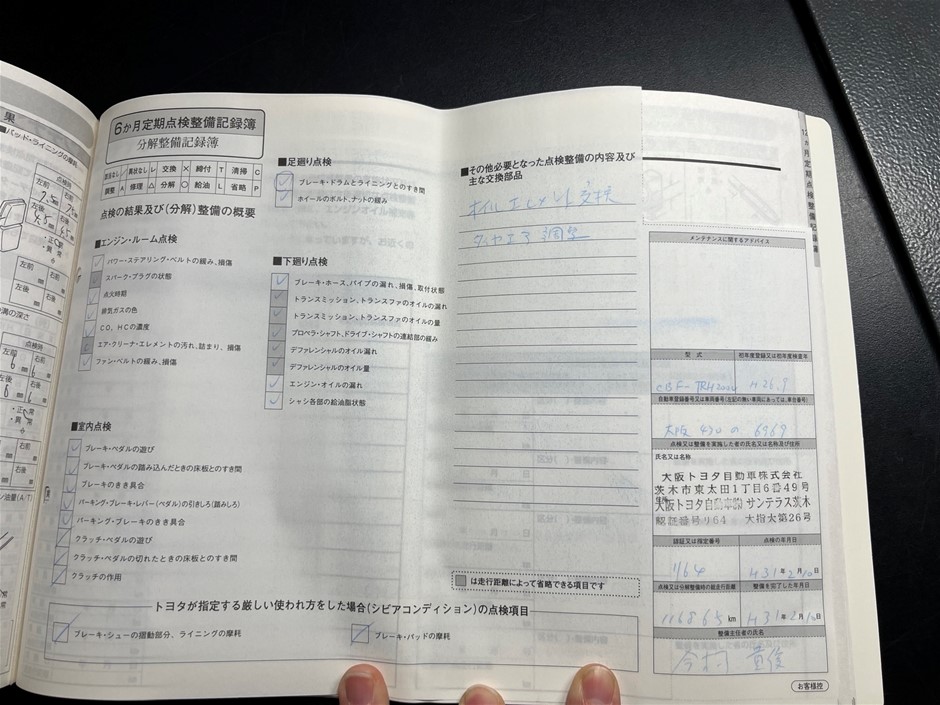 果
■パッド・ライニングの摩耗
6か月定期点検整備記録簿
分解整備記録簿
異状なし
異状なし
交換 ×
締付 T
清掃 C
調整 A
修理 △
分解 ○
給油 L
省略 P
点検の結果及び(分解)整備の概要
■エンジン・ルーム点検
パワー・ステアリング・ベルトの緩み、損傷
スパーク・プラグの状態
点火時期
排気ガスの色
CO、HCの濃度
エア・クリーナ・エレメントの汚れ、詰まり、損傷
ファン・ベルトの緩み、損傷
■室内点検
ブレーキ・ペダルの遊び
ブレーキ・ペダルの踏み込んだときの床板とのすき間
ブレーキのきき具合
パーキング・ブレーキ・レバー(ペダル)の引きしろ(踏みしろ)
パーキング・ブレーキのきき具合
クラッチ・ペダルの遊び
クラッチ・ペダルの切れたときの床板とのすき間
クラッチの作用
■足廻り点検
ブレーキ・ドラムとライニングとのすき間
ホイールのボルト、ナットの緩み
■下廻り点検
ブレーキ・ホース、パイプの漏れ、損傷、取付状態
トランスミッション、トランスファのオイルの漏れ
トランスミッション、トランスファのオイルの量
プロペラ・シャフト、ドライブ・シャフトの連結部の緩み
デファレンシャルのオイル漏れ
デファレンシャルのオイル量
エンジン・オイルの漏れ
シャシ各部の給油脂状態
■その他必要となった点検整備の内容及び
主な交換部品
オイル エレメント交換
タイヤエア調整
は走行距離によって省略できる項目です
トヨタが指定する厳しい使われ方をした場合(シビアコンディション)の点検項目
ブレーキ・シューの摺動部分、ライニングの摩耗
ブレーキ・パッドの摩耗
12か月定期点検整備記録簿
メンテナンスに関するアドバイス
型式
初年度登録又は初年度検査年
CBF-TRH200K
H26.9
自動車登録番号又は車両番号(左記の無い車両にあっては、車台番号)
大阪 430 の 6969
点検又は整備を実施した者の氏名又は名称及び住所
氏名又は名称
大阪トヨタ自動車株式会社
茨木市東太田1丁目6番49号
大阪トヨタ自動車㈱ サンテラス茨木
認証番号1164 大指大第26号
認証又は指定番号
点検の年月日
1164
H31年2月10日
点検又は分解整備時の総走行距離
整備を完了した年月日
116865 km
H31年2月10日
整備主任者の氏名
今村
お客様控